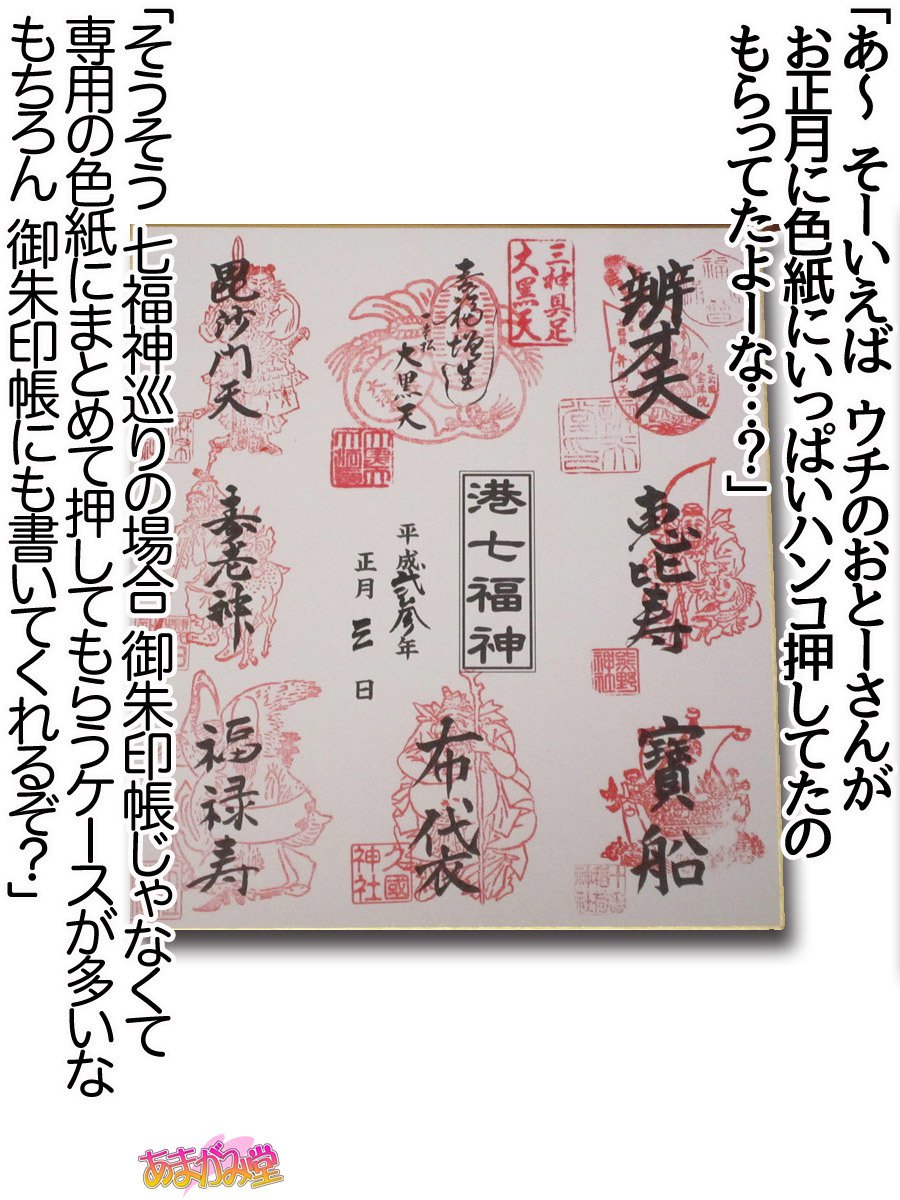 「あ～ そーいえば ウチのおとーさんが
お正月に色紙にいっぱいハンコ押してたの
もらってたよーな…？」
辨才天
三神具足
大黒天
壽福増生
大黒天
毘沙門天
恵比寿
熊野
神社
港七福神
平成弐参年
正月 三 日
寿老神
寳船
布袋
久國
神社
福禄寿
「そうそう 七福神巡りの場合 御朱印帳じゃなくて
専用の色紙にまとめて押してもらうケースが多いな
もちろん 御朱印帳にも書いてくれるぞ？」
あまがみ堂